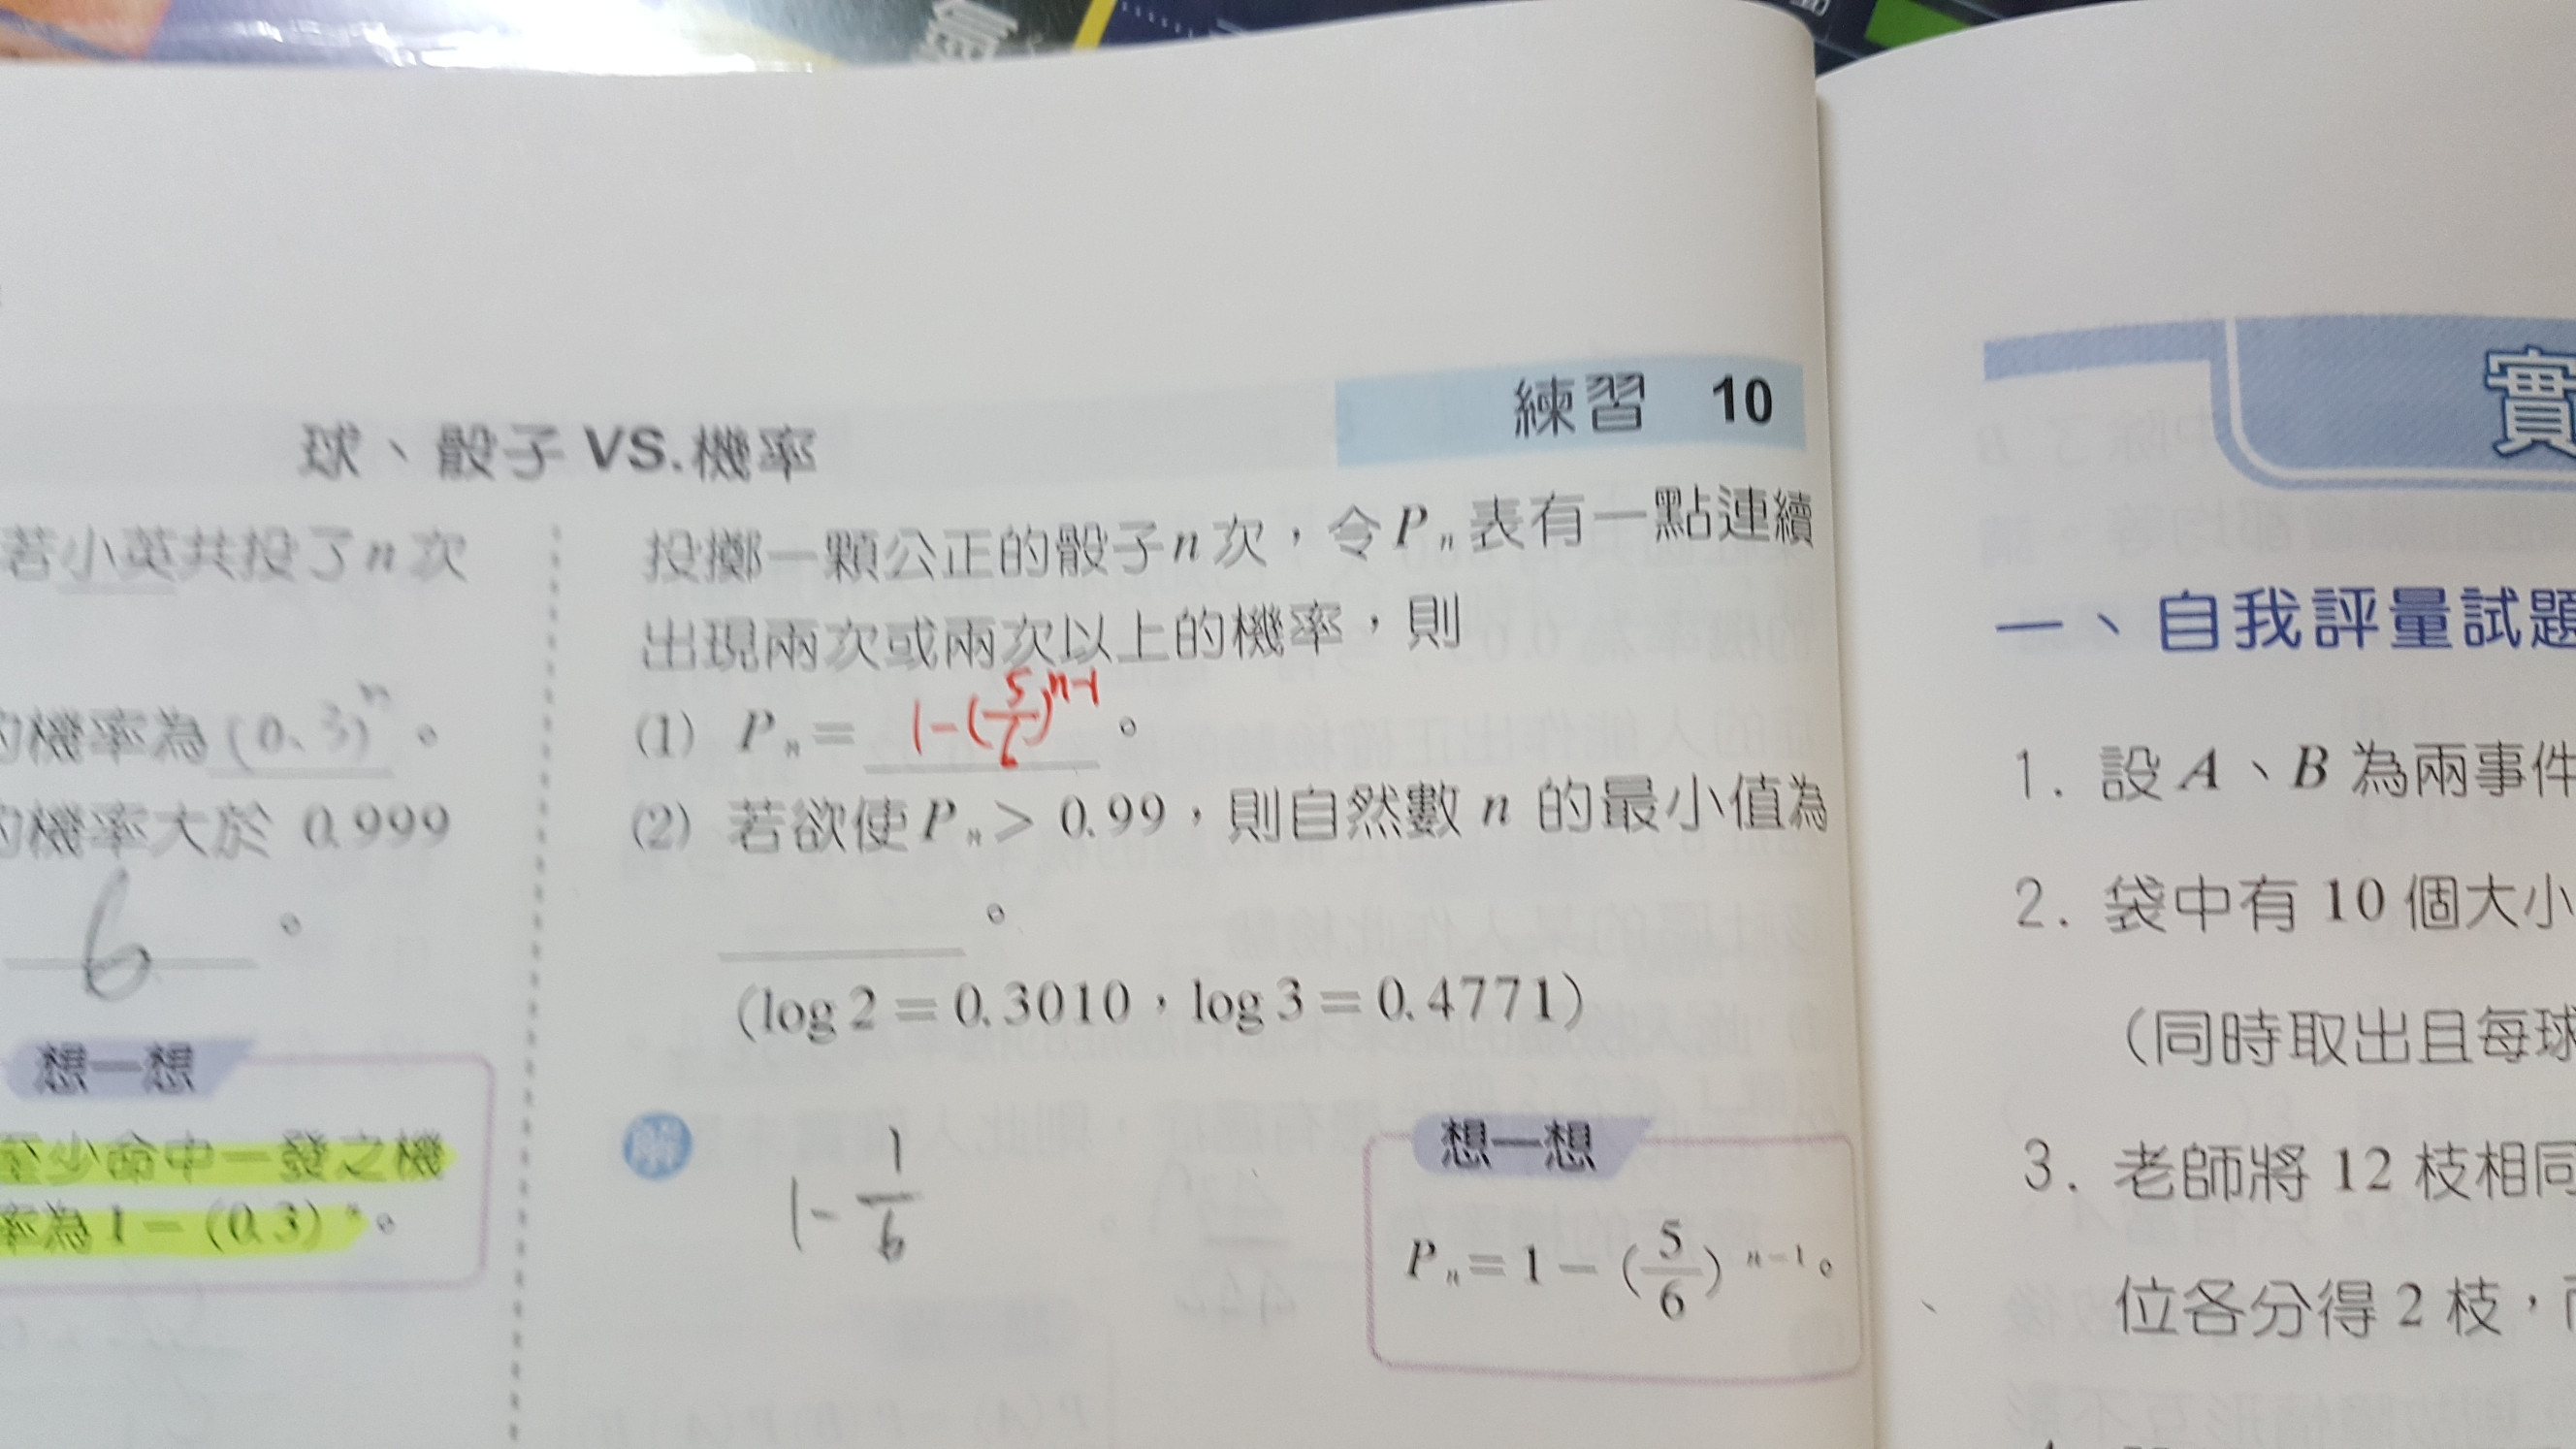 球、骰子 VS.機率
練習 10
若小英共投了n次
的機率為(0.3)ⁿ。
的機率大於 0.999
6。
想一想
至少命中一發之機
率為1-(0.3)ⁿ。
投擲一顆公正的骰子n次,令Pₙ表有一點連續
出現兩次或兩次以上的機率,則
(1) Pₙ= 1-(5/6)ⁿ⁻¹。
(2) 若欲使Pₙ> 0.99,則自然數 n 的最小值為
。
(log 2 = 0.3010,log 3 = 0.4771)
解
1-1/6
想一想
Pₙ=1-(5/6)ⁿ⁻¹。
實
一、自我評量試題
1. 設A、B 為兩事件
2. 袋中有 10 個大小
(同時取出且每球
3. 老師將 12 枝相同
位各分得 2 枝,